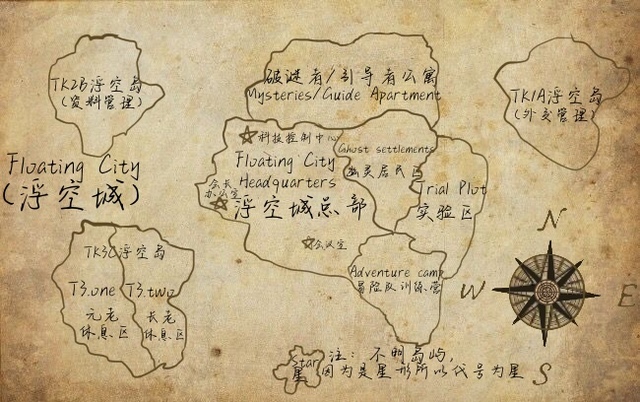 TK2B浮空岛
(资料管理)
破谜者/引导者公寓
Mysteries/Guide Apartment
TK1A浮空岛
(外交管理)
Floating City
(浮空城)
科技控制中心
Floating City
Headquarters
浮空城总部
会长
办公室
会议室
Ghost settlements
幽灵居民区
Trial Plot
实验区
Adventure camp
冒险队训练营
TK3C浮空岛
T3.one
元老
休息区
T3.two
长老
休息区
Star
星
注: 不明岛屿,
因为是星形所以代号为星
N
W
E
S